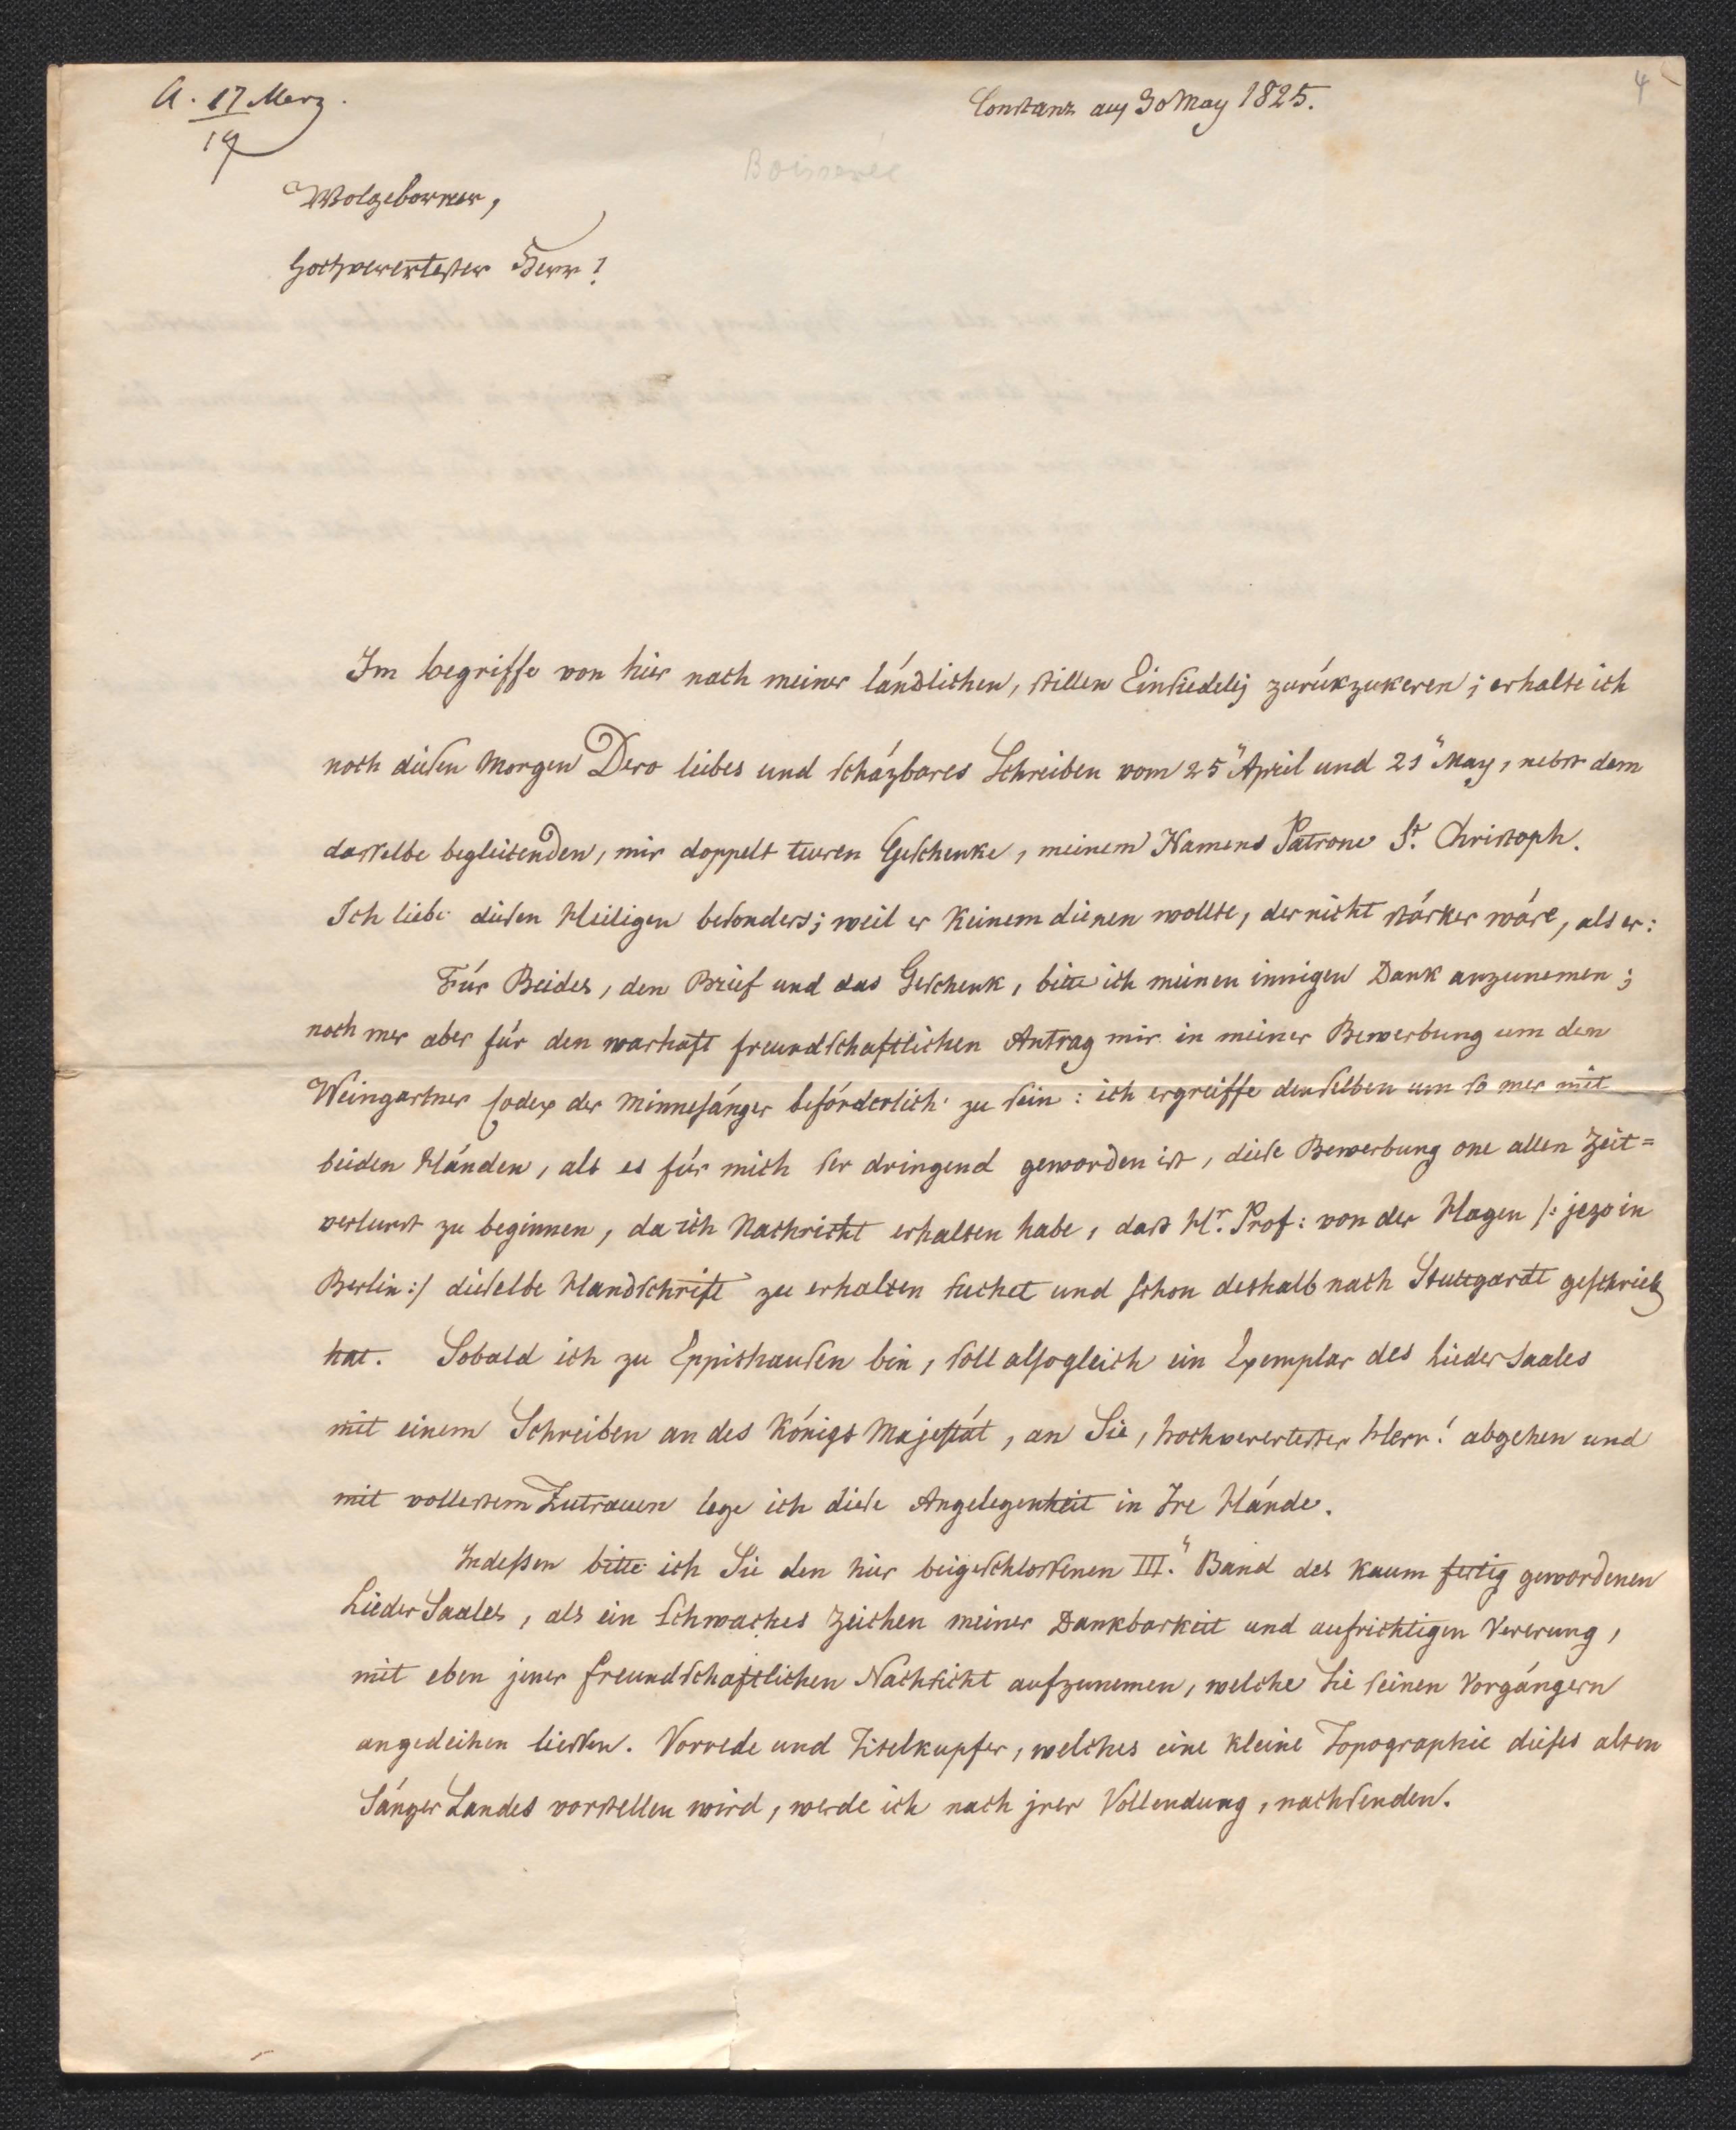 A. 17 Merz.
19
Constanz am 30 May 1825.
4
Boisserée
Wolgeborner,
hochvererterster Herr!
Im begriffe von hier nach meiner ländlichen, stillen Einsiedelej zurükzukeren; erhalte ich
noch diesen Morgen Dero liebes und schäzbares Schreiben vom 25" April und 21" May, nebst dem
dasselbe begleitenden, mir doppelt teuren Geschenke, meinem Namens Patrone St. Christoph.
Ich liebe diesen Heiligen besonders; weil er keinem dienen wollte, der nicht stärker wäre, als er:
Für Beides, den Brief und das Geschenk, bitte ich meinen innigen Dank anzunemen;
noch mer aber für den warhaft freundschaftlichen Antrag mir in meiner Bewerbung um den
Weingartner Codex der Minnesänger beförderlich zu sein: ich ergreiffe denselben um so mer mit
beiden Händen, als es für mich ser dringend geworden ist, diese Bewerbung one allen Zeit=
verlurst zu beginnen, da ich Nachricht erhalten habe, dass Hr. Prof: von der Hagen /: jezo in
Berlin :/ dieselbe Handschrift zu erhalten suchet und schon deshalb nach Stuttgardt geschrieb
hat. Sobald ich zu Eppishausen bin, soll alsogleich ein Exemplar des Lieder Saales
mit einem Schreiben an des Königs Majestät, an Sie, hochverertester Herr! abgehen und
mit vollestem Zutrauen lege ich diese Angelegenheit in Ire Hände.
Indessen bitte ich Sie den hier beigeschlossenen III." Band des kaum fertig gewordenen
Lieder Saales, als ein schwaches Zeichen meiner Dankbarkeit und aufrichtigen Vererung,
mit eben jener freundschaftlichen Nachsicht aufzunemen, welche Sie seinen Vorgängern
angedeihen liessen. Vorrede und Titelkupfer, welches eine kleine Topographie dieses alten
Sänger Landes vorstellen wird, werde ich nach jrer Vollendung, nachsenden.